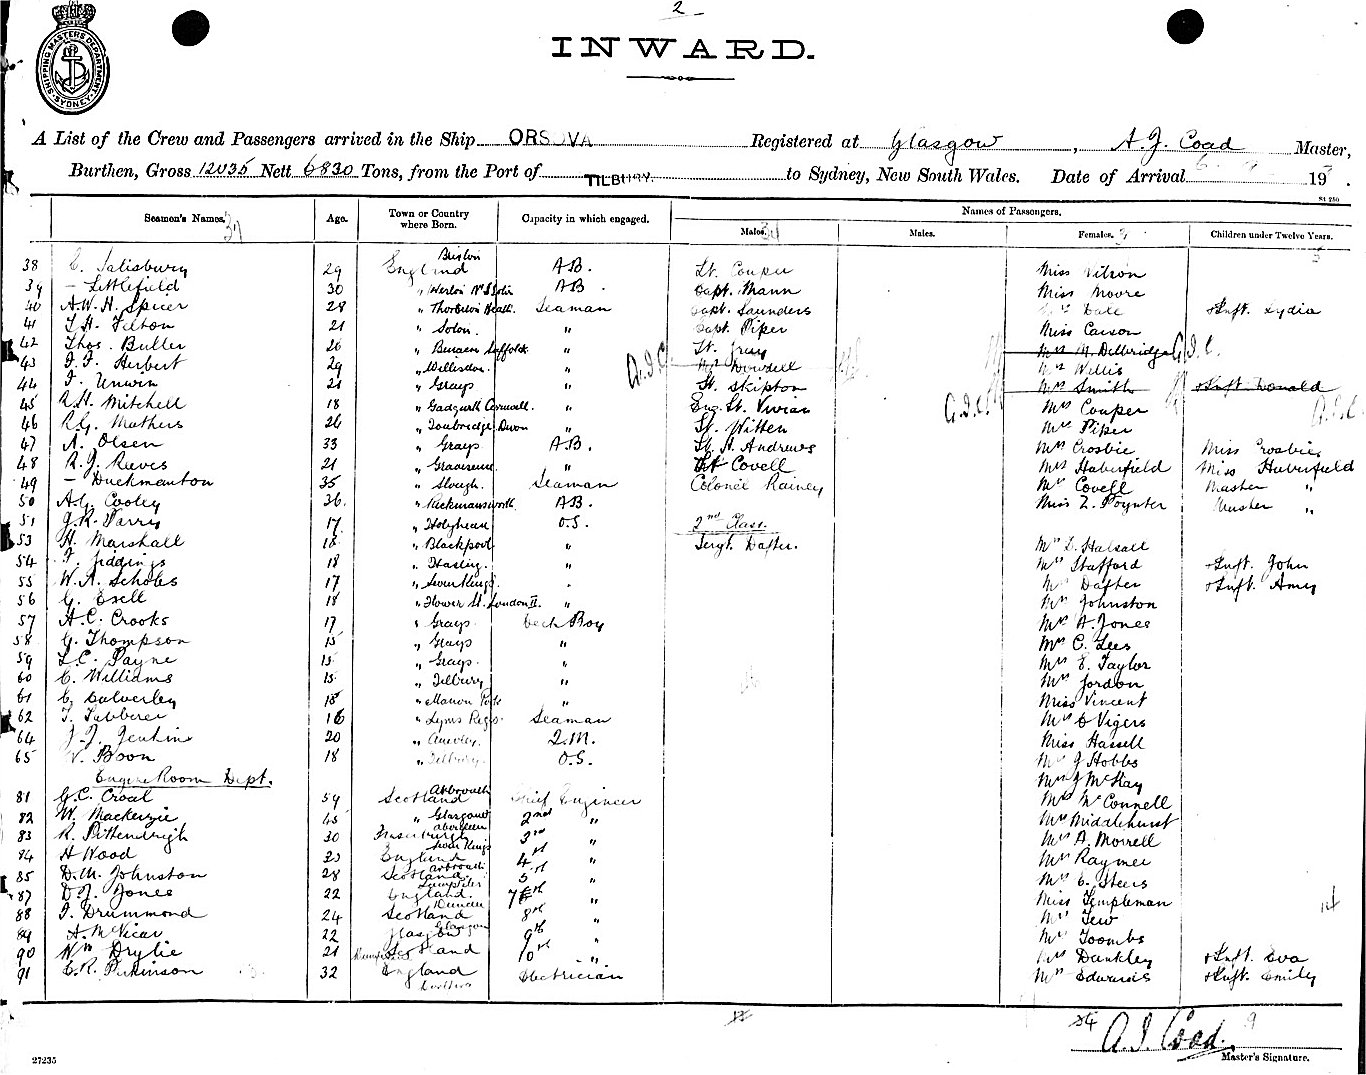 2
SHIPPING MASTERS DEPARTMENT SYDNEY
INWARD.
A List of the Crew and Passengers arrived in the Ship ORSOVA Registered at Glasgow, A. J. Coad Master,
Burthen, Gross 12035 Nett 6830 Tons, from the Port of TILBURY. to Sydney, New South Wales. Date of Arrival 191 .
Seamen's Names. Age. Town or Country where Born. Capacity in which engaged. Names of Passengers.
Males. Males. Females. Children under Twelve Years.
38 E. Salisbury 29 England A.B. Lt. Couper Miss Vitron
39 – Littlefield 30 A.B. Capt. Mann Miss Moore
40 A.W.H. Spicer 28 " Thornton Heath. Seaman Capt. Saunders Inft. Lydia
41 L.H. Felton 21 " " Capt. Piper Miss Carson
42 Thos. Buller 26 " Suffolk " Lt. Gray Mrs M. Delbridge A.I.C.
43 Herbert 29 " Willesden. " A.I.C. Dowdell Mrs Willis
44 Unwin 21 " Grays " Lt. Skipton Mrs Smith Inft. Donald
45 R.H. Mitchell 18 " Cornwall. " Eng. Lt. Vivian A.I.C. Mrs Couper A.I.C.
46 R.G. Mathers 26 " Devon " Lt. Witten Mrs Piper
47 A. Olsen 33 " Grays A.B. Lt. H. Andrews Mrs Crosbie Miss Crosbie
48 R.J. Reeves 21 " Gravesend. " Lt Covell Mrs Haberfield Miss Haberfield
49 – Duckmanton 35 " Slough. Seaman Colonel Rainey Mrs Covell Master "
50 A.G. Cooley 36. " Rickmansworth. A.B. Miss Z. Poynter Master "
51 J.R. Parry 17 " Holyhead O.S. 2nd Class.
53 H. Marshall 18 " Blackpool " Sergt. Dafter. Mrs D. Halsall
54 Giddings 18 " " Mrs Stafford Inft. John
55 W.A. Scholes 17 " Seven Kings. " Mrs Dafter Inft. Amy
56 G. Esell 18 " Flower St. London " Mrs Johnston
57 H.C. Crooks 17 " Grays Deck Boy Mrs A. Jones
58 G. Thompson 15 " Grays " Mrs C. Lees
59 L.C. Payne 15 " Grays. " Mrs E. Taylor
60 C. Williams 15 " Tilbury " Mrs Jordon
61 Calverley 18 " Manor Park " Miss Vincent
62 T. Tabberer 16 " Lyme Regis. Seaman Mrs Vigers
64 J.J. Jenkins 20 " Anerley. Q.M. Miss Hassell
65 W. Boon 18 " Tilbury. O.S. Mrs J Hobbs
Engine Room Dept. Mrs J McKay
81 G.C. Croal 59 Scotland Arbroath Chief Engineer Mrs McConnell
82 W. Mackenzie 45 " Glasgow 2nd " Mrs Middlehurst
83 R. Pittendrigh 30 Aberdeen Fraserburgh 3rd " Mrs A. Morrell
84 H Wood 25 England Seven Kings 4th " Mrs Raymer
85 D.M. Johnston 28 Scotland Arbroath 5 " Mrs E. Steers
87 D.J. Jones 22 England. 7th " Miss Templeman
88 Drummond 24 Scotland Dundee 8th " Mrs Tew
89 A. McVicar 22 Glasgow 9th " Mrs Toombs
90 Wm Drylie 21 Scotland 10th " Mrs Dunkley Inft. Eva
91 Parkinson 32 England Electrician Mrs Edwards Inft. Emily
A. J. Coad.
Master's Signature.
27235